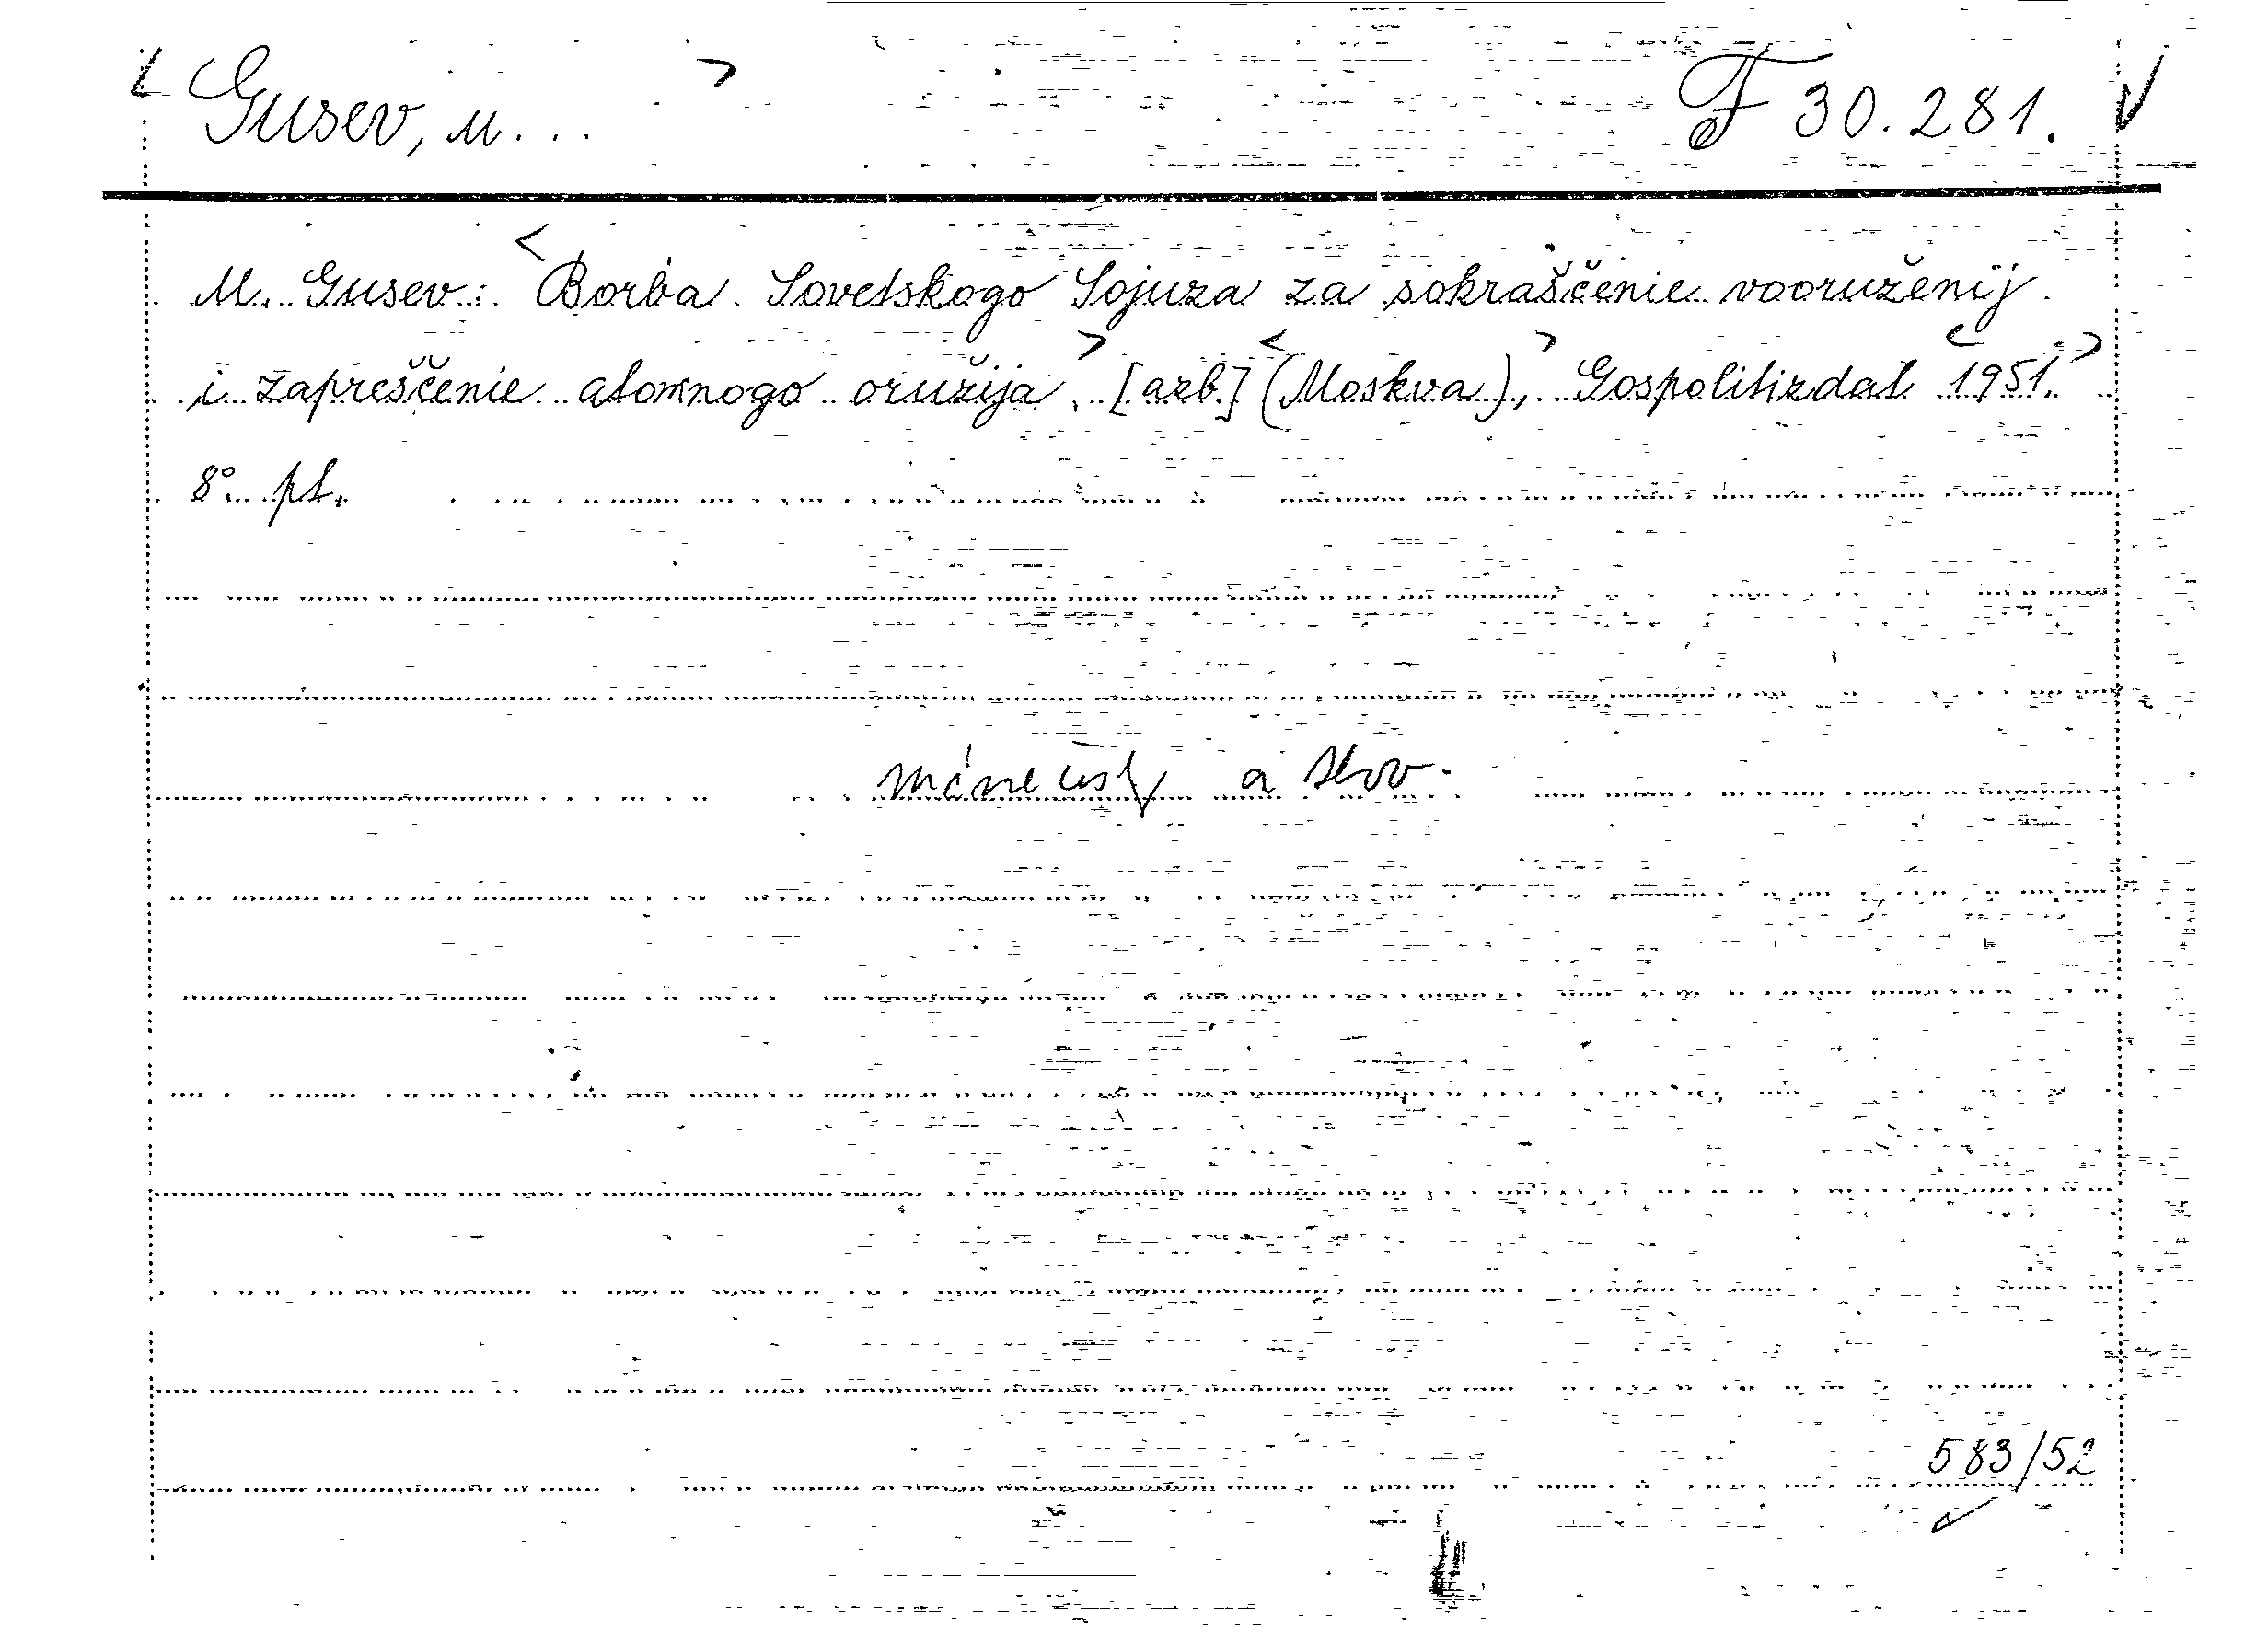 Gusev, M... F 30.281.
M. Gusev: Borba Sovetskogo Sojuza za sokraščenie vooruženij
i zapreščenie atomnogo oružija, [azb] (Moskva), Gospolitizdat 1951.
8° pt.
máme česky a slov.
583/52